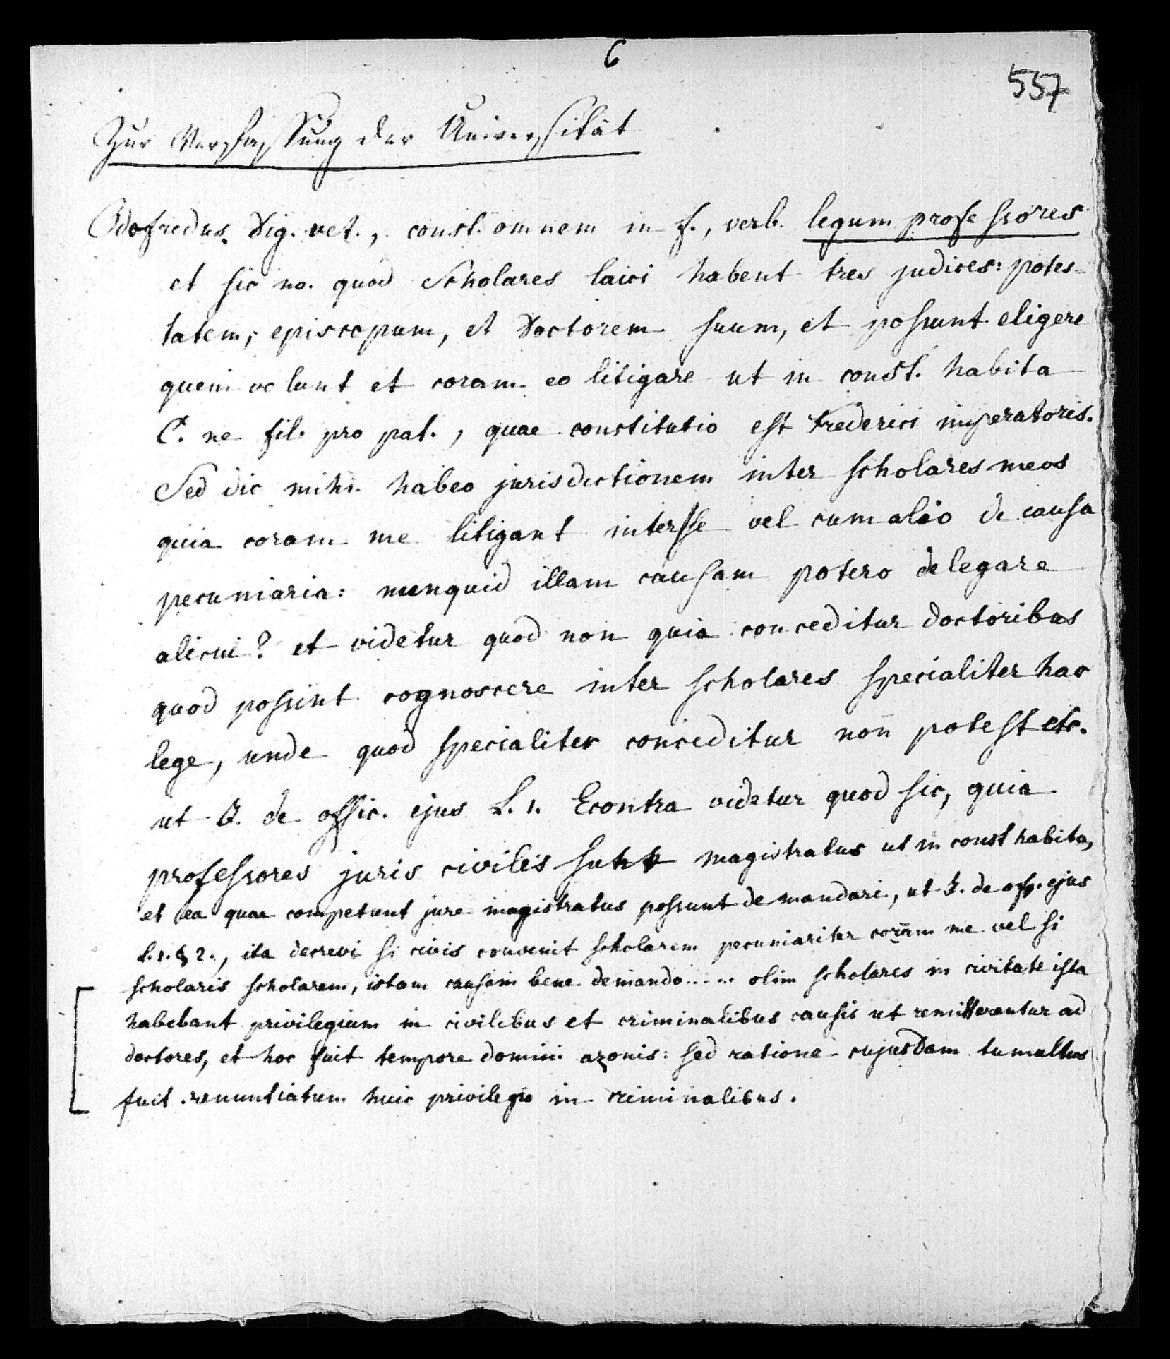 6
557
Zur Verfassung der Universität
Odofredus Dig. vet., const. omnem in f., verb. legum professores
et sic no. quod Scholares laici habent tres judices: potes-
tatem, episcopum, et Doctorem suum, et possunt eligere
quem volunt et coram eo litigare ut in const. habita
C. ne fil. pro pat., quae constitutio est Frederici imperatoris.
Sed dic mihi habeo jurisdictionem inter scholares meos
quia coram me litigant interse vel cum alio de causa
pecuniaria: nunquid illam causam potero delegare
alicui? et videtur quod non quia conceditur doctoribus
quod possint cognoscere inter scholares specialiter hac
lege, unde quod specialiter conceditur non potest etc.
ut J. de offic. ejus L. 1. Econtra videtur quod sic, quia
professores juris civilis sunt magistratus ut in const habita,
et ea quae competunt jure magistratus possunt demandari, ut J. de off. ejus
L. 1. § 2., ita decrevi si civis convenit scholarem pecuniariter coram me vel si
scholaris scholarem, istam causam bene demando ..... olim scholares in civitate ista
habebant privilegium in civilibus et criminalibus causis ut remitterentur ad
doctores, et hoc fuit tempore domini azonis: sed ratione cujusdam tumultus
fuit renuntiatum huic privilegio in criminalibus.